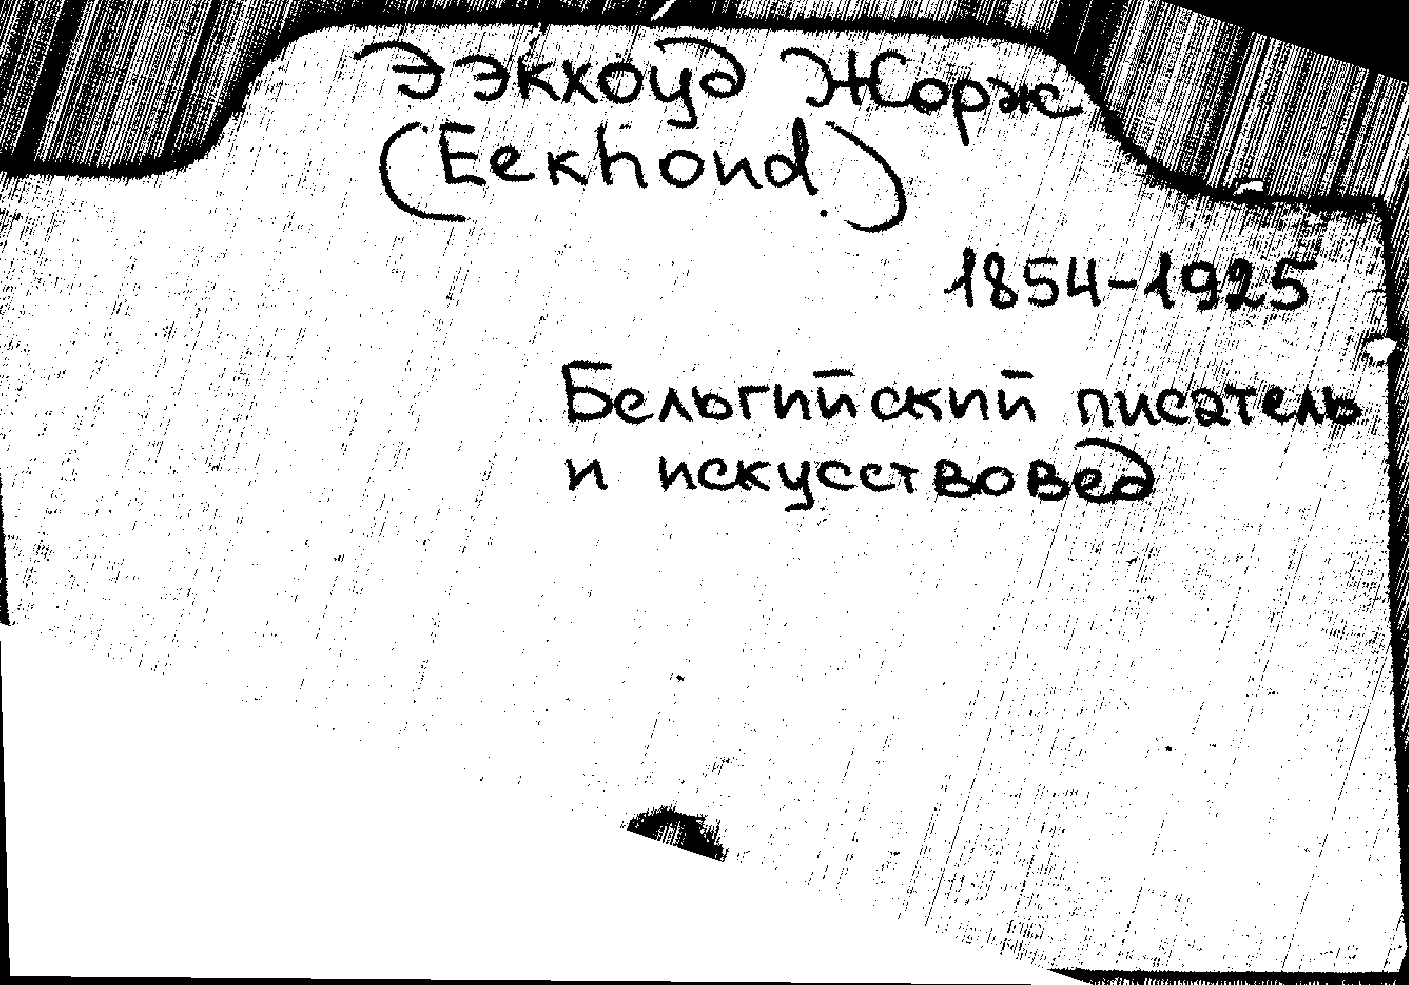 Ээкхоуд Жорж
(Eekhoud.)
1854-1925
Бельгийский писатель
и искусствовед